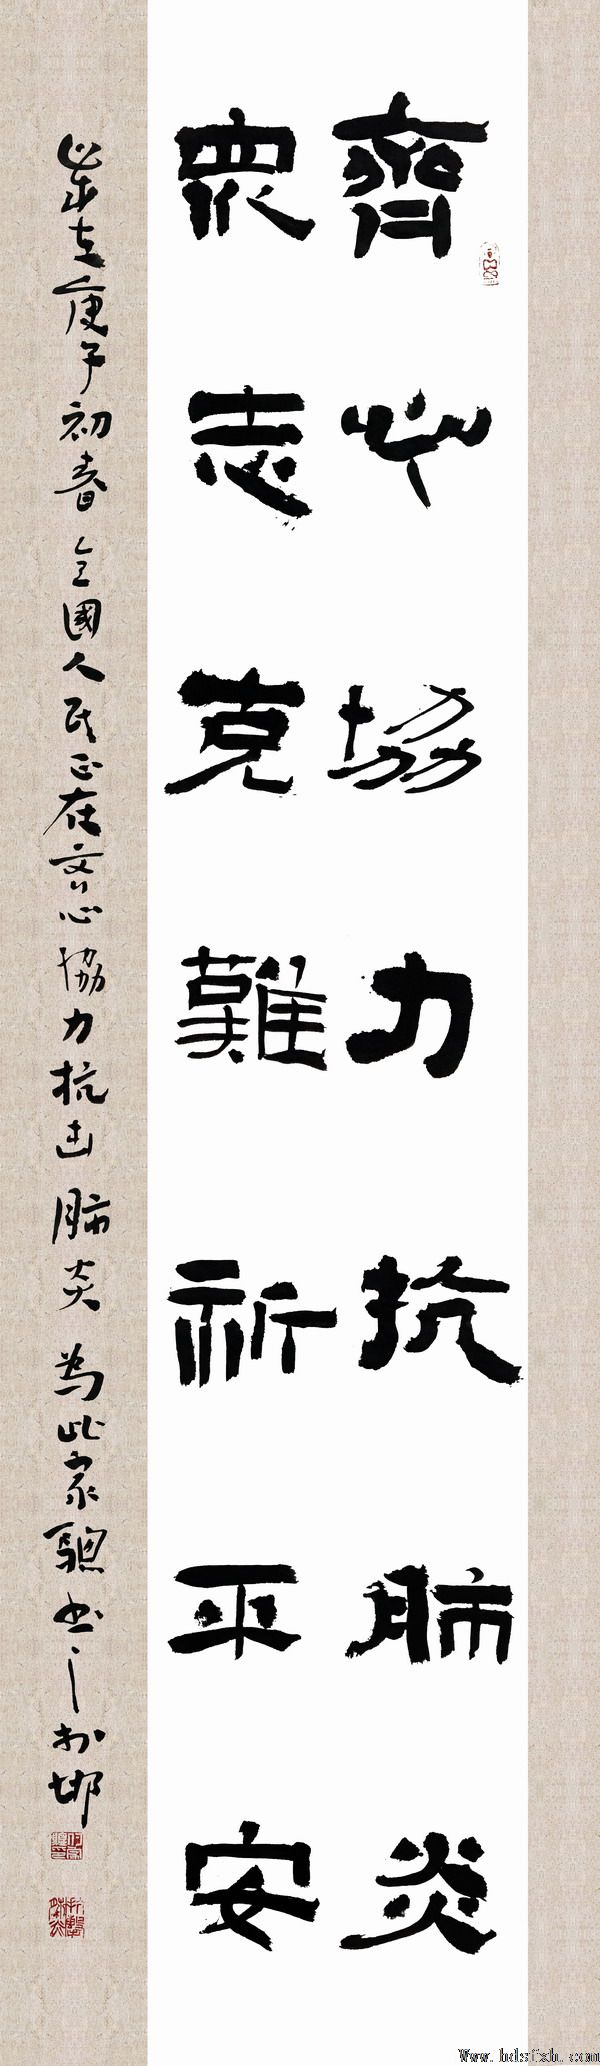 齊心協力抗肺炎
衆志克難祈平安
歲在庚子初春全國人民正在齊心協力抗击肺炎為此家驄书之於邯
Www.hdsfxh.com